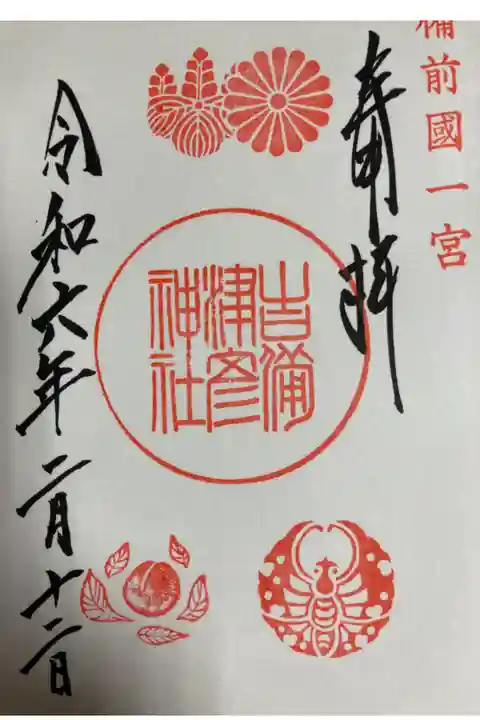 備前國一宮
奉拝
吉備
津彦
神社
令和六年二月十二日